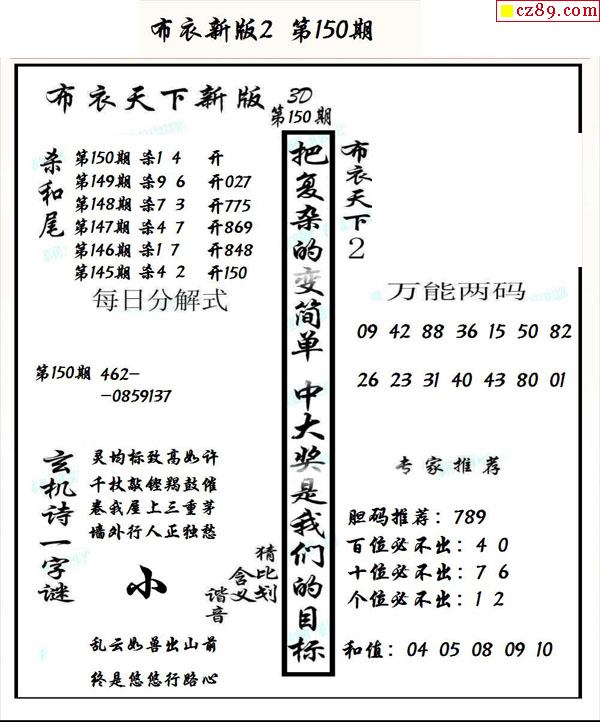 cz89.com
布衣新版2 第150期
布衣天下新版 3D
第150期
杀和尾
第150期 杀1 4 开
第149期 杀9 6 开027
第148期 杀7 3 开775
第147期 杀4 7 开869
第146期 杀1 7 开848
第145期 杀4 2 开150
每日分解式
第150期 462-
-0859137
玄机诗一字谜
灵均标致高如许
千杖敲铿羯鼓催
卷我屋上三重茅
墙外行人正独愁
小
猜比划
含义
谐音
乱云如兽出山前
终是悠悠行路心
把复杂的变简单 中大奖是我们的目标
布衣天下2
万能两码
09 42 88 36 15 50 82
26 23 31 40 43 80 01
专家推荐
胆码推荐：789
百位必不出：4 0
十位必不出：7 6
个位必不出：1 2
和值：04 05 08 09 10